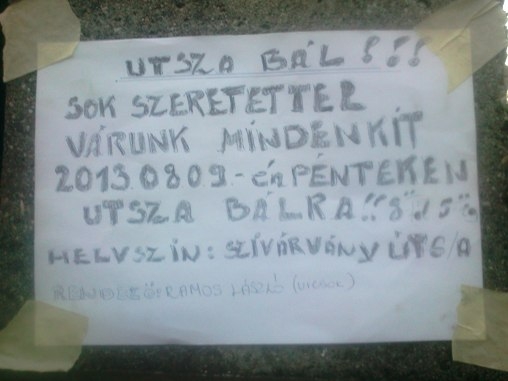 UTSZA BÁL!!!
SOK SZERETETTEL
VÁRUNK MINDENKIT
2013.08.09.-én PÉNTEKEN
UTSZA BÁLRA
HELVSZÍN: SZÍVÁRVÁNY ÚT 6/A
RENDEZŐ: RAMOS LÁSZLÓ